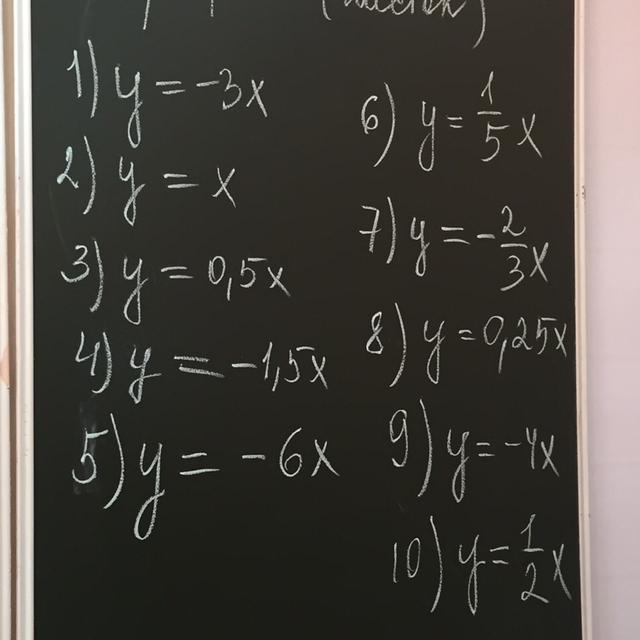 1) y = -3x
2) y = x
3) y = 0,5x
4) y = -1,5x
5) y = -6x
6) y = 1/5 x
7) y = -2/3 x
8) y = 0,25x
9) y = -4x
10) y = 1/2 x